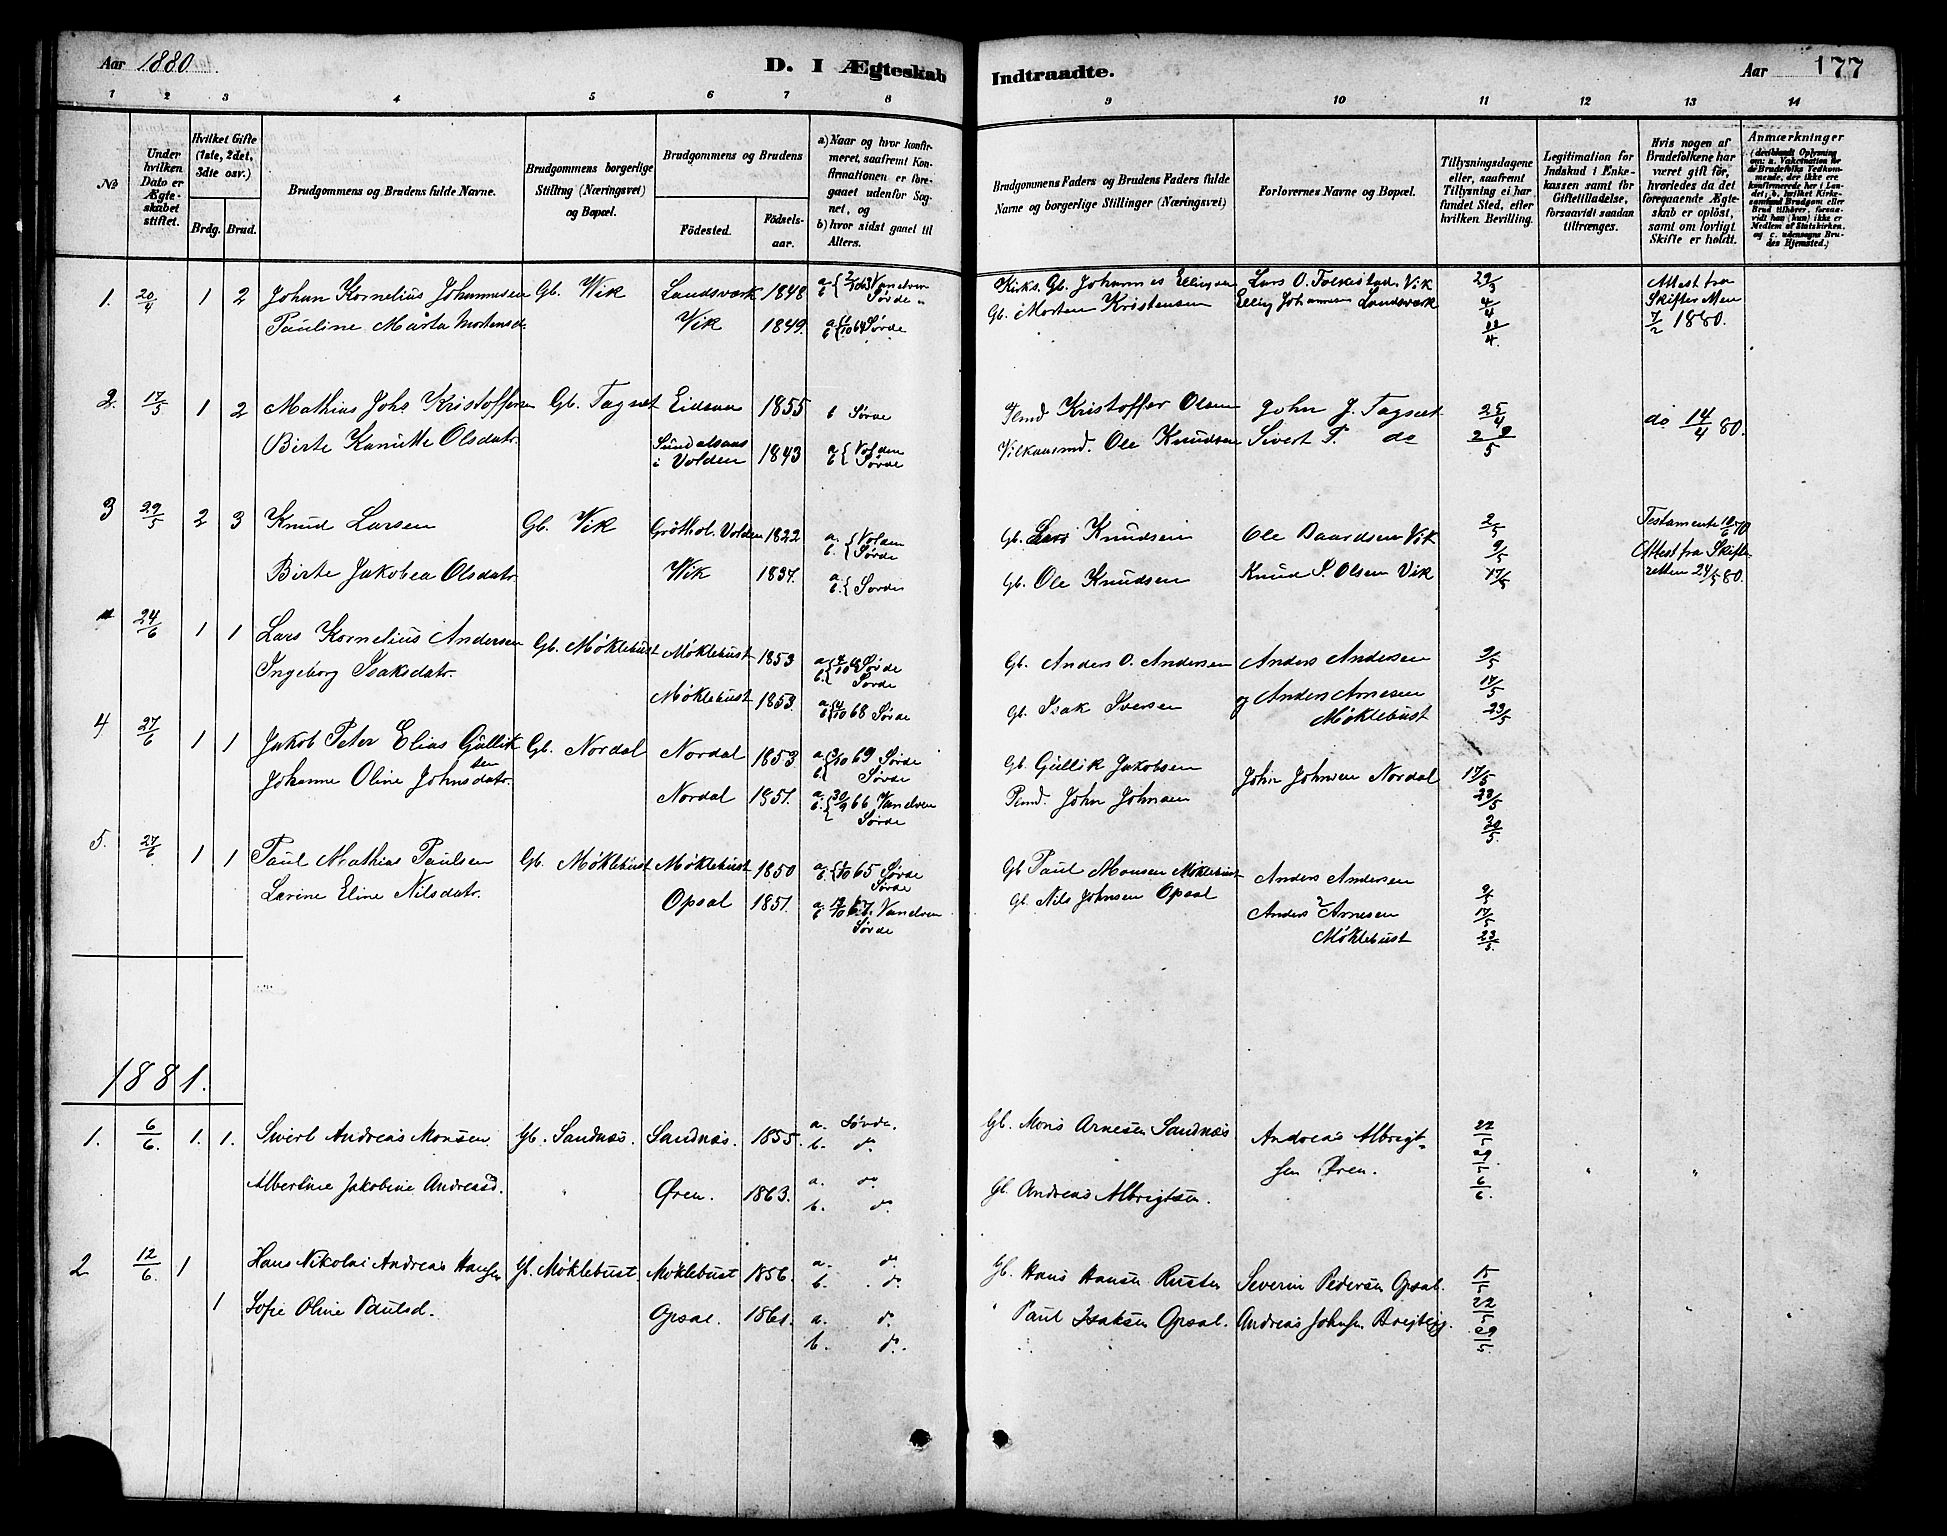 Aar 1880. D. I Ægteskab Indtraadte. Aar 177
1 2 3 4 5 6 7 8 9 10 11 12 13 14
No
Under hvilken Dato er Ægteskabet stiftet.
Hvilket Gifte (1ste, 2det, 3dte osv.)
Brdg. Brud.
Brudgommens og Brudens fulde Navne.
Brudgommens borgerlige Stilling (Næringsvei) og Bopæl.
Brudgommens og Brudens
Födested. Födsels-aar.
a) Naar og hvor konfirmeret, saafremt Konfirmationen er foregaaet udenfor Sognet, og
b) hvor sidst gaaet til Alters.
Brudgommens Faders og Brudens Faders fulde Navne og borgerlige Stillinger (Næringsvei)
Forlovernes Navne og Bopæl.
Tillysningsdagene eller, saafremt Tillysning ei har fundet Sted, efter hvilken Bevilling.
Legitimation for Indskud i Enkekassen samt for Giftetilladelse, forsaavidt saadan tiltrænges.
Hvis nogen af Brudefolkene har været gift för, hvorledes da det foregaaende Ægteskab er oplöst, samt om lovligt Skifte er holdt.
Anmærkninger
1. 20/4 1 2 Johan Kornelius Johannesen Gb. Wik Landsværk 1848 Vanelven Sørde Kirks. Gb. Johannes Ellingsen Lars O. Folkestad Vik 29/3 Attest fra
Pauline Márta Mortensd. Wik 1849. 64 Sørde Gb. Morten Kristensen Elling Johannesen Landsværk 4/4 Skifter Men
7/2 1880.
2. 17/5 1 2 Mathias Johs Kristoffersen Gb. Tagset Eidsaa 1855 b Sørde Kristoffer Olsen John J. Tagset 25/4 do 14/4 80.
Birte Kanutte Olsdatr. i Volden 1843 a b Volden Sørde Ole Knudsen Sivert P. do 2 9/5
3 29/5 2 3 Knud Larsen Gb. Vik Volden 1822 a. b. Volden Sørde Gb. Lars Knudsen Ole Baardsen Vik 2/5 Testamente
9/5 Attest fra Skifte
Birte Jakobea Olsdatr. Wik 1837. a. b. Sørde Gb. Ole Knudsen Knud S. Olsen Vik 17/5 retten 24/5 80.
24/6 1 1 Lars Kornelius Andersen Gb. Møklebust Møklebust 1853 a. b. Sørde Sørde Gb. Anders O. Andersen Anders Andersen 9/5
Ingeborg Isaksdatr. Møklebust 1853. 4/10 68 Sørde Gb. Isak Iversen og Anders Arnesen 17/5
Møklebust 23/5
4 27/6 1 1 Jakob Peter Elias Gulliksen Gb. Nordal Nordal 1853 a. b. 3/10 69 Sørde Sørde Gb. Gullik Jakobsen John Johnsen Nordal 17/5
Johanne Oline Johnsdatr. Nordal 1851. a. b. 30/9 66 Vanelven Sørde Pmd. John Johnsen 23/5
30/5.
5. 27/6 1 1 Paul Mathias Paulsen Gb. Møklebust Møklebust 1850 a. b. 1/10 65 Sørde Sørde Gb Paul Monsen Møklebust Anders Andersen
Lærine Eline Nilsdatr. Opsal 1851. Vanelven Sørde Gb. Nils Johnsen Opsal 9/5
Anders Arnesen 17/5
Møklebust 23/5.
1881.
1. 6/6. 1. 1. Sivert Andreas Monsen. Gb. Sandnæs. Sandnæs. 1855. a. Sørde. b. do. Gb. Mons Arnesen Sandnæs Andreas Albrigt- 22/5
sen Øren. 29/5
Albertine Jakobine Andreasd. " Øren. 1863. a. do. b. do. Gb. Andreas Albrigtsen. 6/6.
2 12/6. 1 Hans Nikolai Andreas Hansen Gb. Møklebust Møklebust 1856. a. do. b. do. Gb. Hans Hansen Rusten Severin Pedersen Opsal. 15/5
1 Sofie Oline Paulsd. Opsal. 1861. a. do. b. do. " Paul Isaksen Opsal. Andreas Johnsen 22/5
29/5.